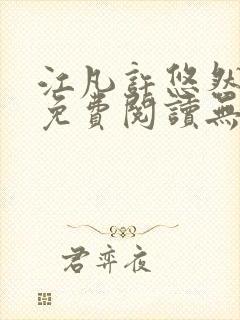 江凡許悠然
免費閱讀無
君弈夜